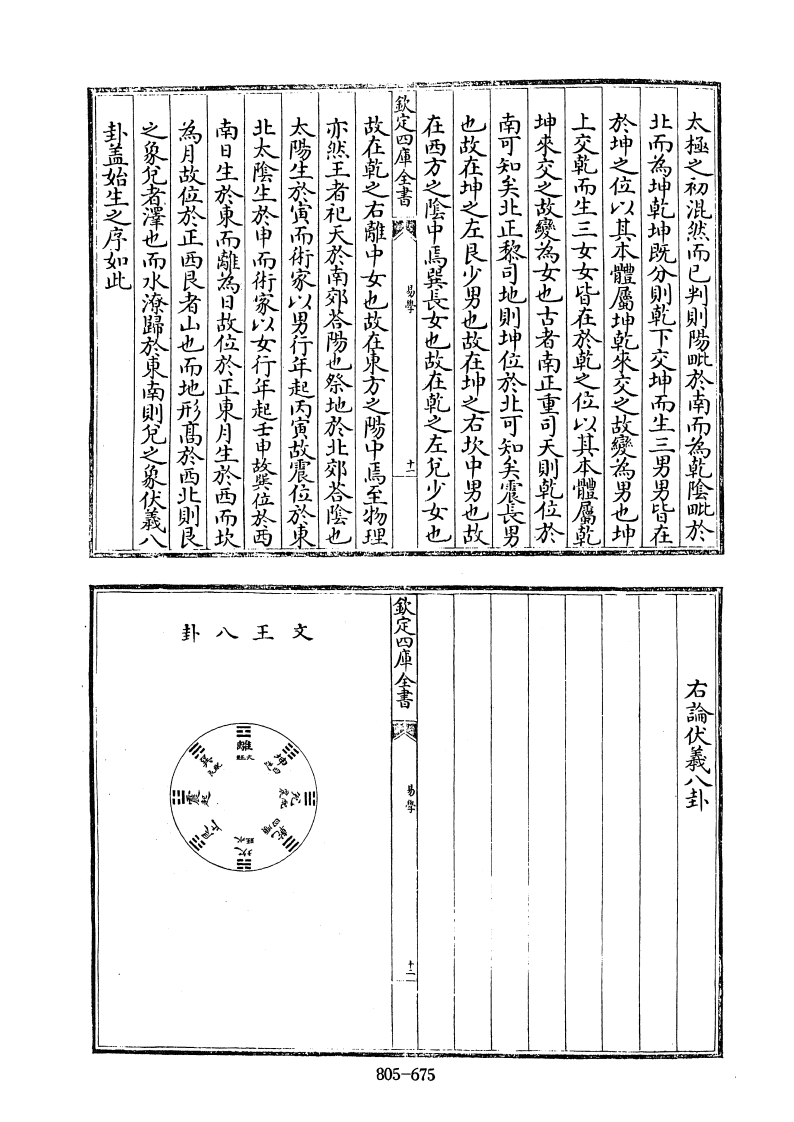 太極之初混然而已判則陽毗於南而為乾陰毗於
北而為坤乾坤既分則乾下交坤而生三男男皆在
於坤之位以其本體屬坤乾來交之故變為男也坤
上交乾而生三女女皆在於乾之位以其本體屬乾
坤來交之故變為女也古者南正重司天則乾位於
南可知矣北正黎司地則坤位於北可知矣震長男
也故在坤之左艮少男也故在坤之右坎中男也故
在西方之陰中焉巽長女也故在乾之左兌少女也
欽定四庫全書
易學
十二
故在乾之右離中女也故在東方之陽中焉至物理
亦然王者祀天於南郊荅陽也祭地於北郊荅陰也
太陽生於寅而術家以男行年起丙寅故震位於東
北太陰生於申而術家以女行年起壬申故巽位於西
南日生於東而離為日故位於正東月生於西而坎
為月故位於正西艮者山也而地形髙於西北則艮
之象兌者澤也而水潦歸於東南則兌之象伏羲八
卦盖始生之序如此
右論伏羲八卦
欽定四庫全書
易學
十二
文王八卦
離
坤
兌
乾
坎
艮
震
巽